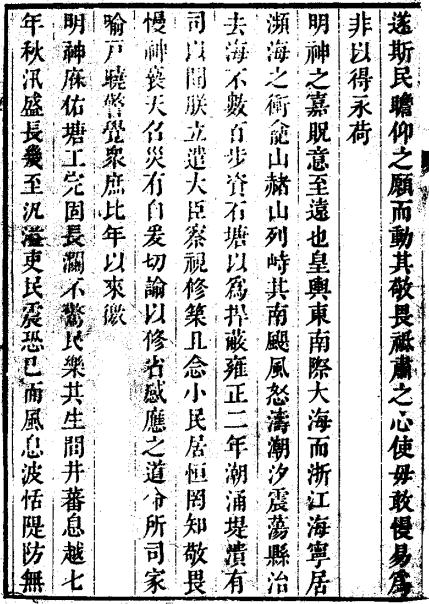 遂斯民瞻仰之願而動其敬畏祗肅之心使毋敢慢易為
非以得永荷
明神之嘉貺意至遠也皇輿東南際大海而浙江海寧居
瀕海之衝龕山赭山列峙其南颶風怒濤潮汐震蕩縣治
去海不數百步資石塘以為捍蔽雍正二年潮涌堤潰有
司以聞朕立遣大臣察視修築且念小民居恒罔知敬畏
慢神褻天召災有自爰切諭以修省感應之道令所司家
喻戶曉警覺眾庶比年以來徼
明神庥佑塘工完固長瀾不驚民樂其生閭井蕃息越七
年秋汛盛長幾至汎溢吏民震恐已而風息波恬隄防無